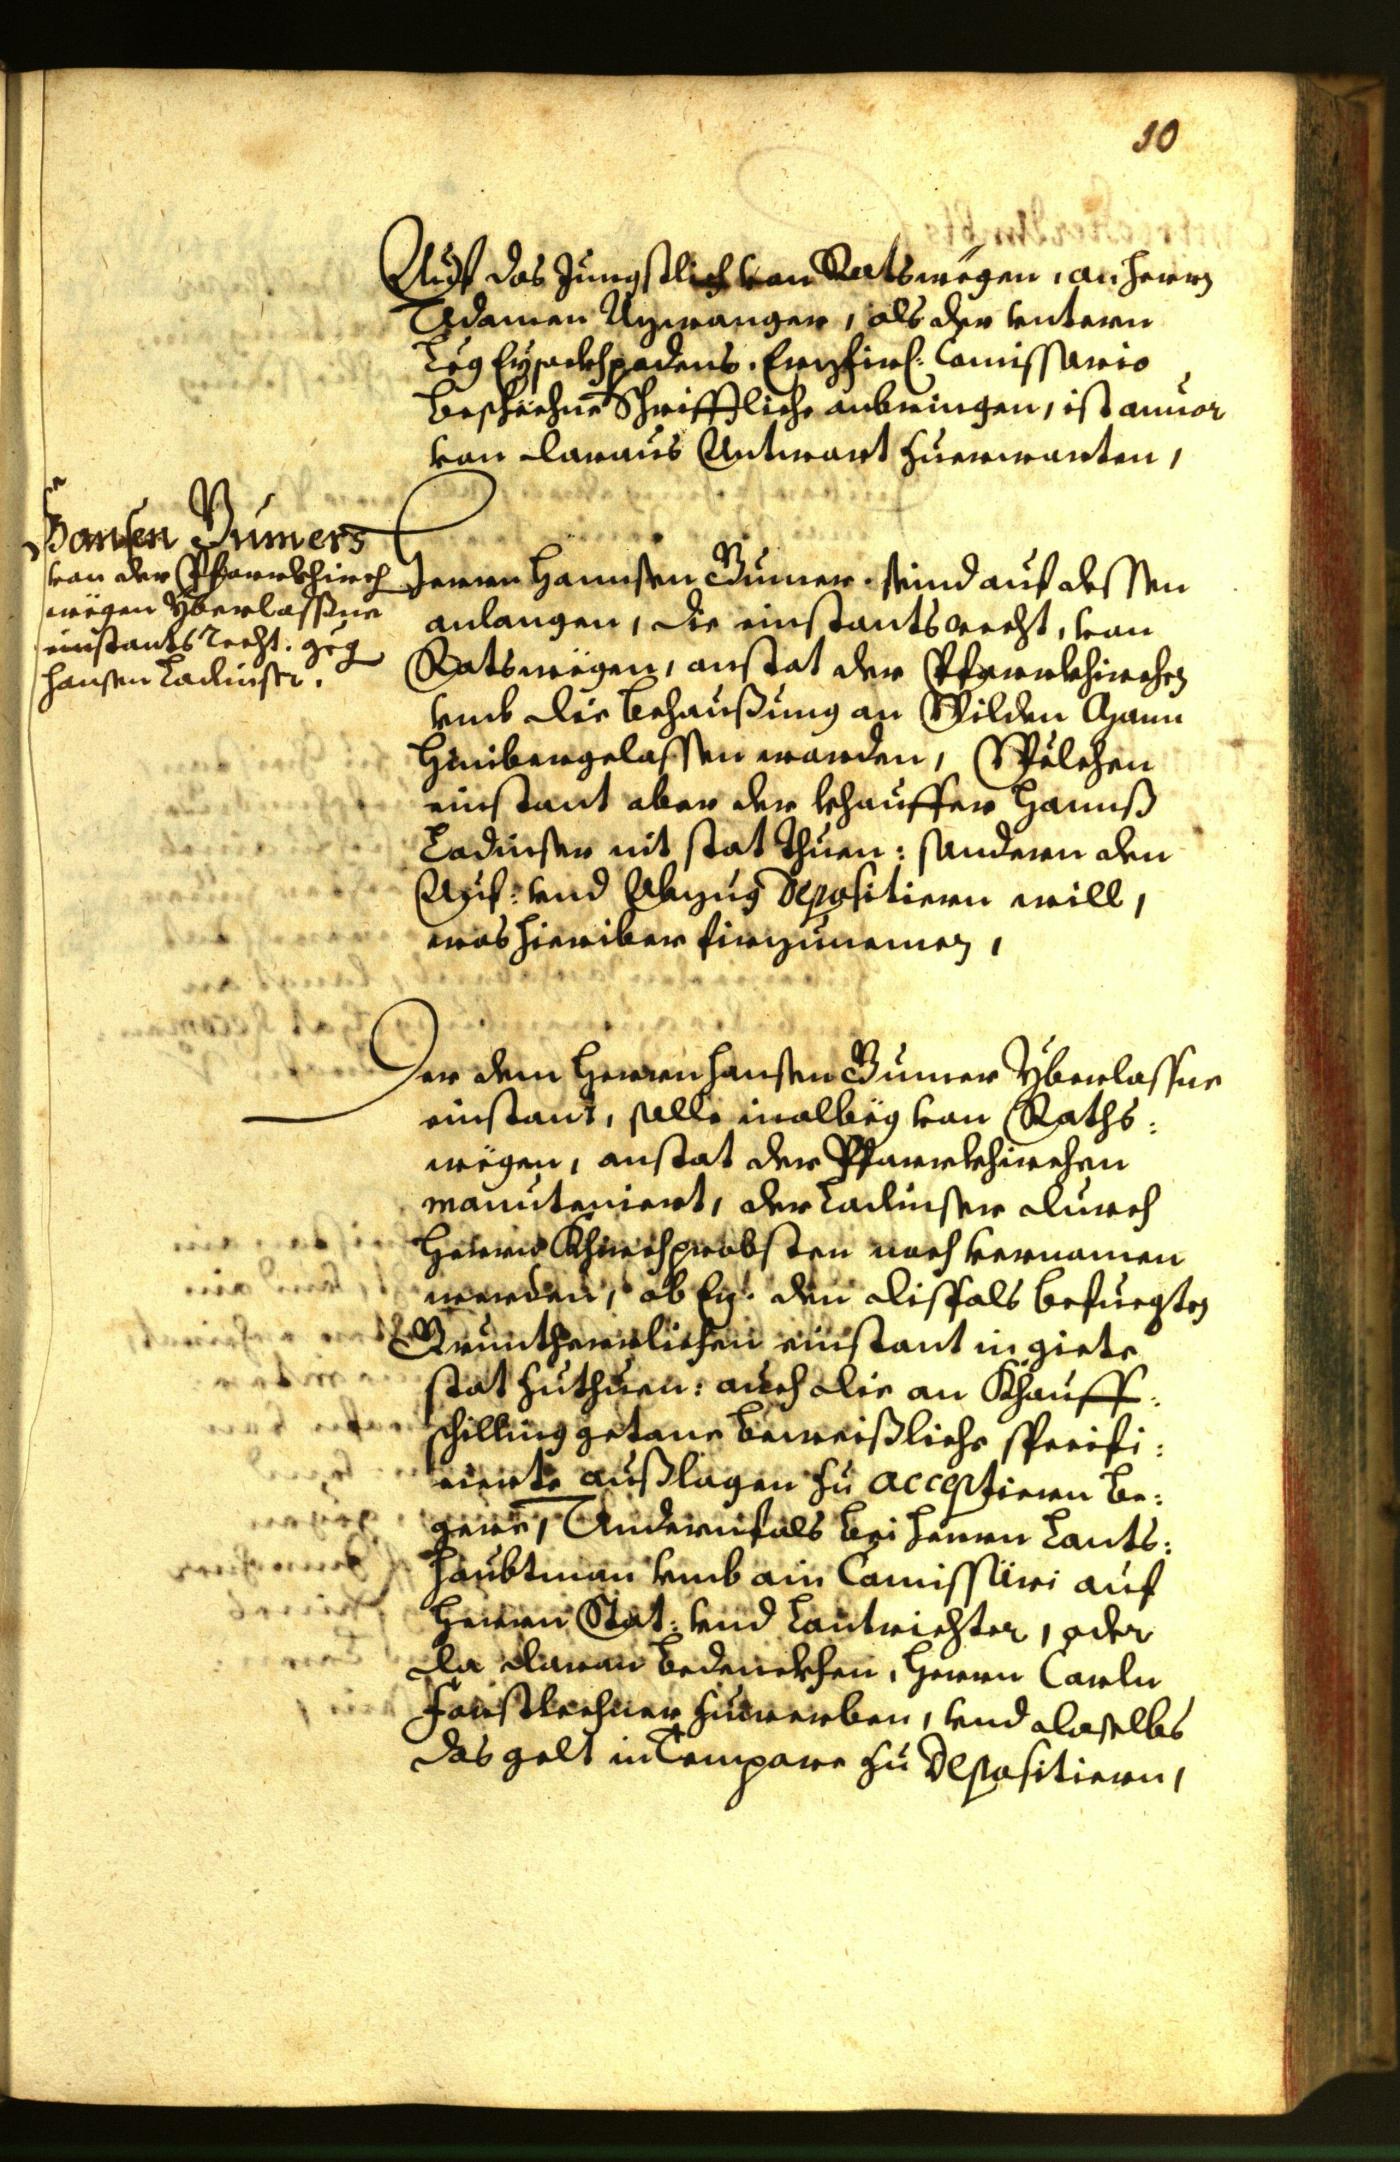 10
Auf das Jungstlich von Ratswëgen, an herrn
Adamen Uzwanger, als der untern
Leg Eysackhpodens. Erzfirl: Comissario
beschechne Schrifftliche anbringen, ist annor
von daraus Antwort zuerwarten,
Hansen Gumers
von der Pfarrkhirch
wëgen Yberlassne
einstants Recht. geg
hansen Ladinser.
Herrn Hannsen Gumer. seind auf dessen
anlangen, die einstants recht, von
Ratswëgen, anstat der Pfarrkhirchen
umb die Behaußung an Wilden Mann
hinibergelassen worden, Wëlchen
einstant aber der khauffer Hannß
Ladinser nit stat thuen: sondern den
Auf: und Abzug Depositiern will,
was hieriber firzunemen,
Der dem Herrn hansen Gumer Yberlassne
einstant, solle inalbëg von Raths:
wëgen, anstat der Pfarrkhirchen
manuteniert, der Ladinser durch
Herrn Khirchprobsten noch vernomen
werden, ob Er den disfals befuegten
Gruntherrlichen einstant in giete
stat zuthuen: auch die an Khauff:
schilling getane beweißliche specifi:
cierte außlagen zu acceptiern be:
gere, Andernfals bei herrn Lants:
haubtman umb ain Comissäri auf
Herrn Stat: und Lantrichter, oder
da daran bedenckhen, herrn Carln
Forstlechner zuwerben, und daselbs
das gelt in Tempore zu Depositiern,